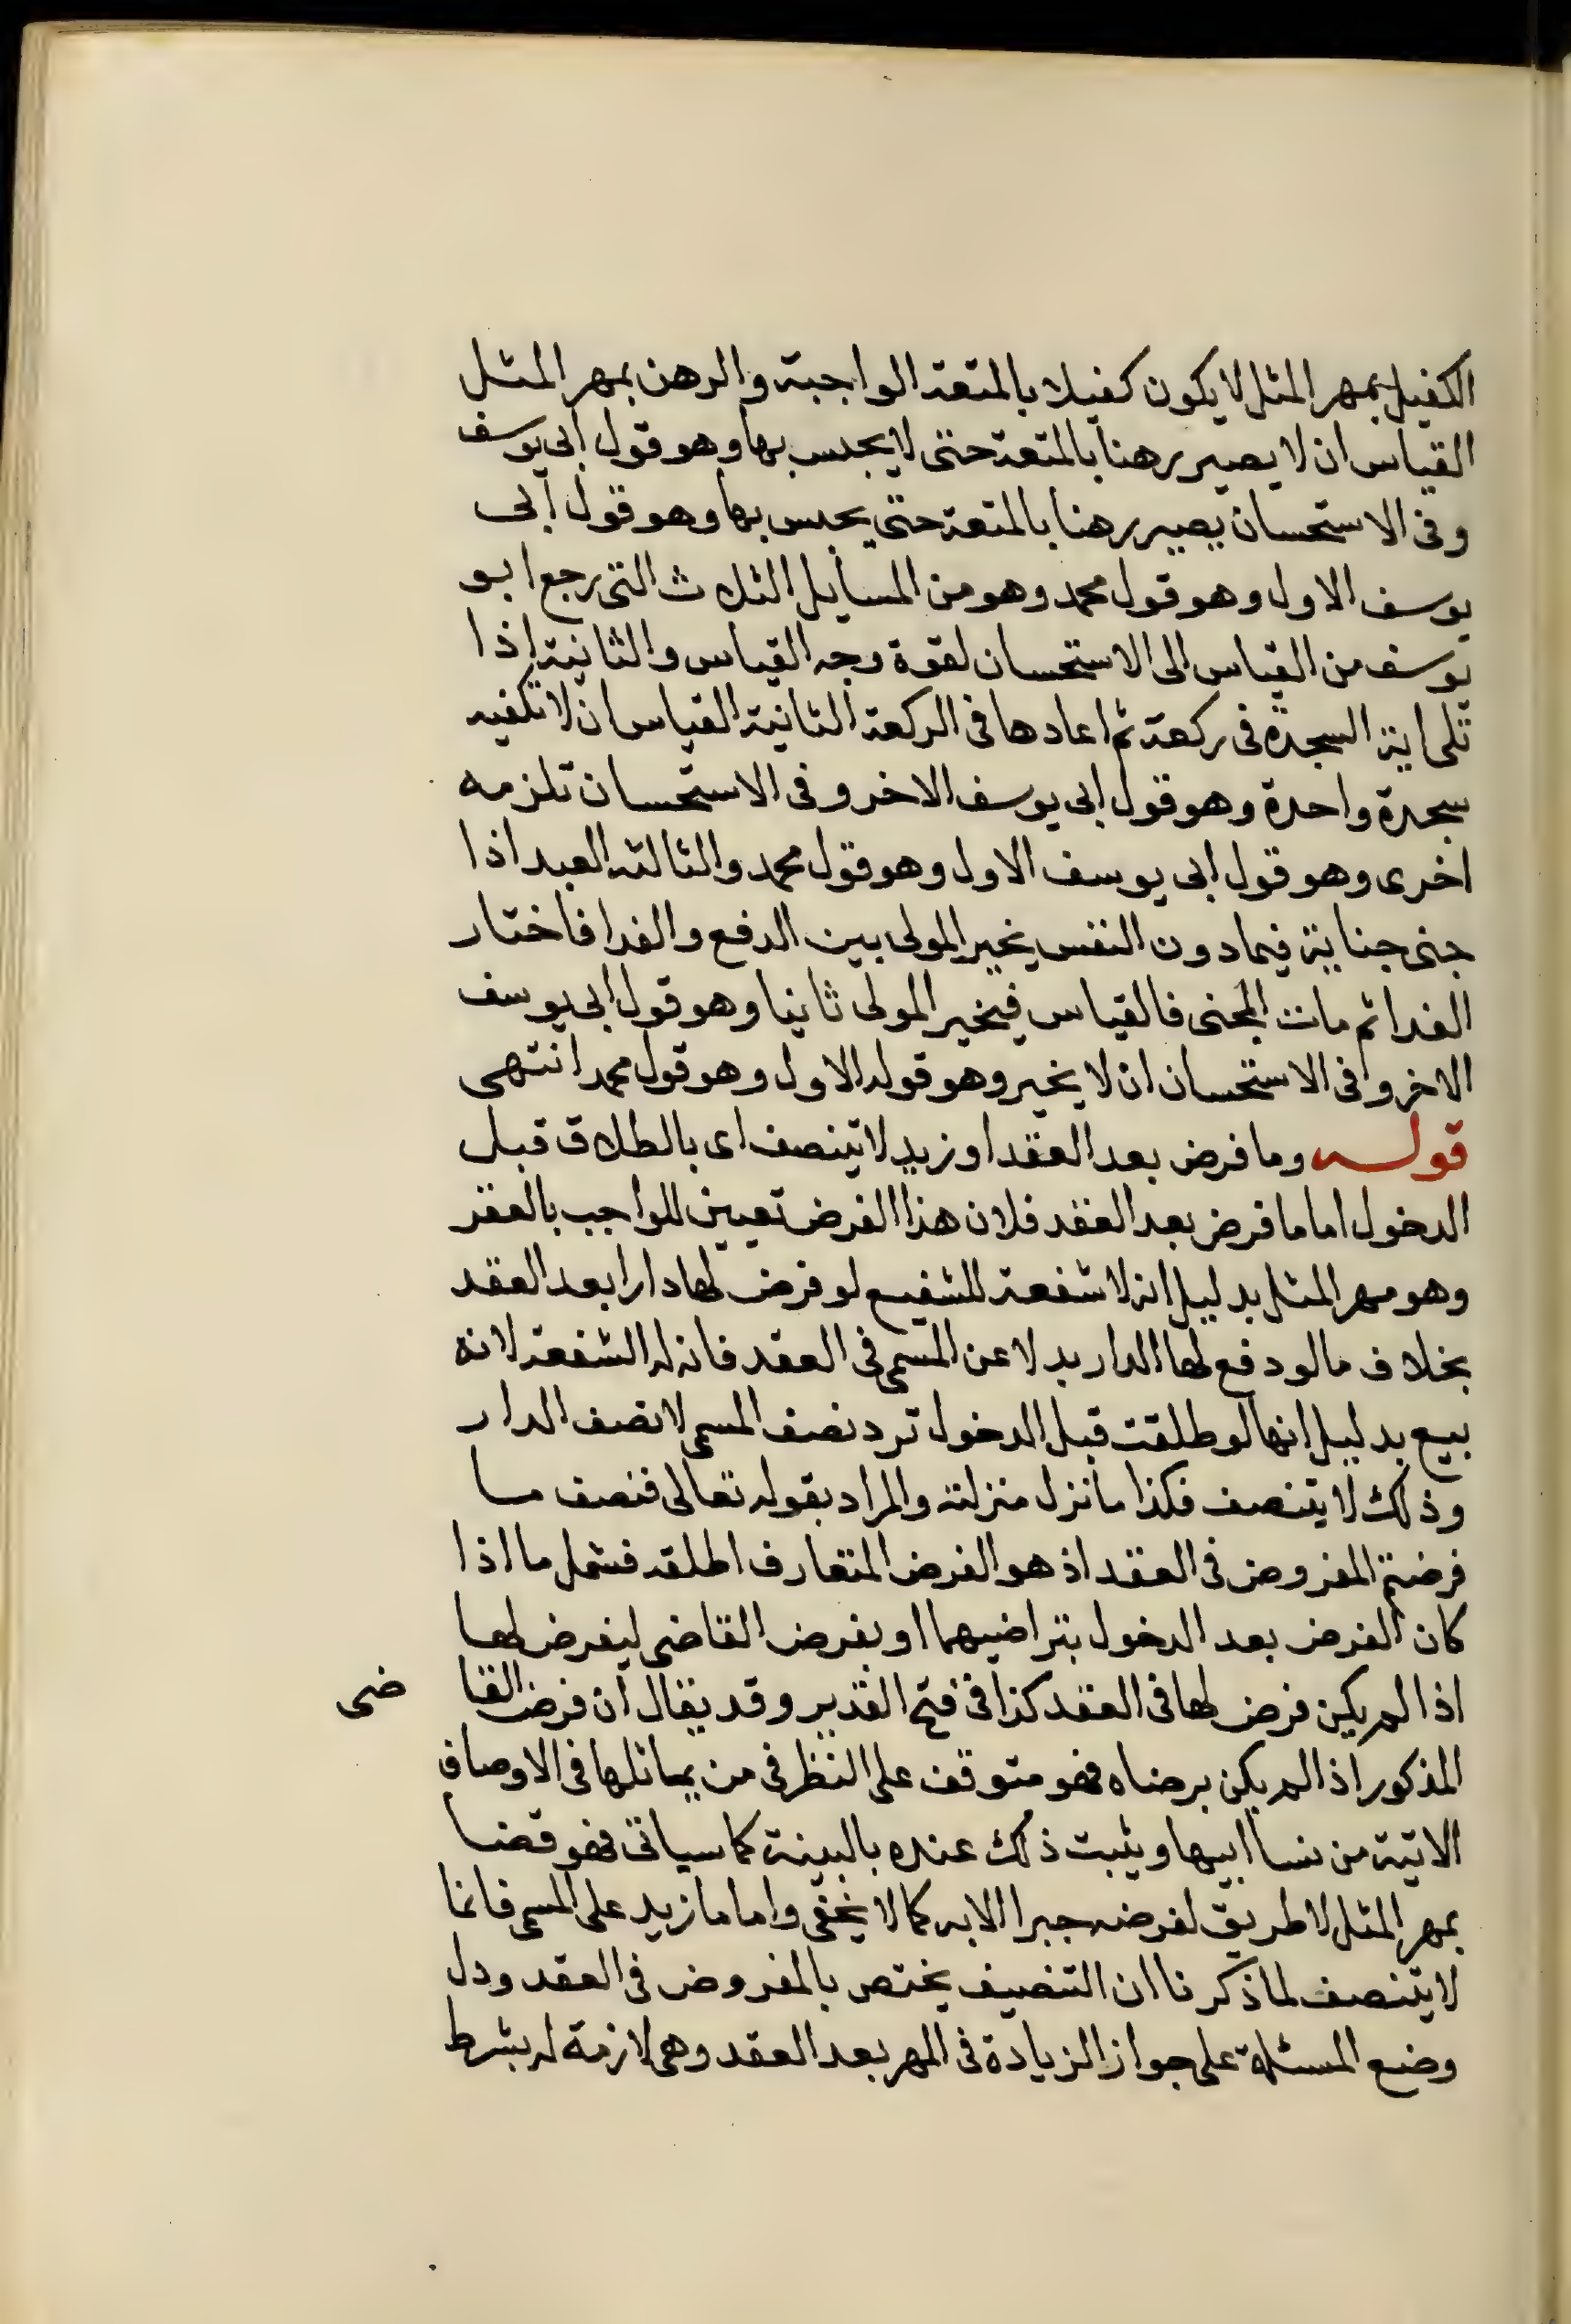 الكفيل بمهر المثل لا يكون كفيلا بالمتعة الواجبة والرهن بمهر المثل
القياس ان لا يصير رهنا بالمتعة حتى لا يحبس بها وهو قول ابى يوسف
وفى الاستحسان يصير رهنا بالمتعة حتى يحبس بها وهو قول ابى
يوسف الاول وهو قول محمد وهو من المسايل الثلاث التى رجع ابو
يوسف من القياس الى الاستحسان لقوة وجه القياس والثانية اذا
تلى اية السجدة فى ركعة ثم اعادها فى الركعة الثانية القياس ان لا تكفيه
سجدة واحدة وهو قول ابى يوسف الاخر وفى الاستحسان تلزمه
اخرى وهو قول ابى يوسف الاول وهو قول محمد والثالثة العبد اذا
جنى جناية فيما دون النفس يخير المولى بين الدفع والفدا فاختار
الفدا ثم مات المجنى فالقياس فيخير المولى ثانيا وهو قول ابى يوسف
الاخر وفى الاستحسان ان لا يخير وهو قوله الاول وهو قول محمد انتهى
قوله وما فرض بعد العقد او زيد لا يتنصف اى بالطلاق قبل
الدخول اما ما فرض بعد العقد فلان هذا الفرض تعيين للواجب بالعقد
وهو مهر المثل بدليل انه لا شفعة للشفيع لو فرض لها دارا بعد العقد
بخلاف ما لو دفع لها الدار بدلا عن المسمى فى العقد فانه له الشفعة لانه
بيع بدليل انها لو طلقت قبل الدخول ترد نصف المسمى لا نصف الدار
وذلك لا يتنصف فكذا ما نزل منزلته والمراد بقوله تعالى فنصف ما
فرضتم المفروض فى العقد اذ هو الفرض المتعارف اطلقه فشمل ما اذا
كان الفرض بعد الدخول بتراضيهما او بفرض القاضى ليفرض لها
اذا لم يكن فرض لها فى العقد كذا فى فتح القدير وقد يقال ان فرض القا ضى
المذكور اذا لم يكن برضاه فهو متوقف على النظر فى من يماثلها فى الاوصاف
الاتية من نسا ابيها ويثبت ذلك عنده بالبينة كما سياتى فهو قضا
بمهر المثل لا طريق لفرضه جبرا الا به كما لا يخفى واما ما زيد على المسمى فانما
لا يتنصف لما ذكرنا ان التنصيف يختص بالمفروض فى العقد ودل
وضع المسئلة على جواز الزيادة فى المهر بعد العقد وهى لازمة له بشرط